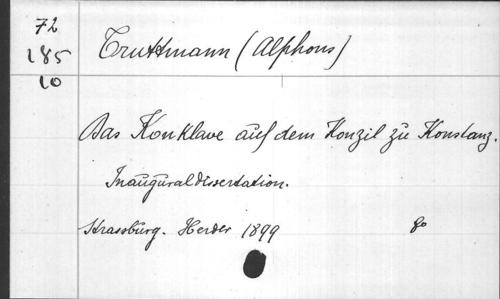 72
185
10
Truttmann (Alphons)
Das Konklave auf dem Konzil zu Konstanz.
Inauguraldissertation.
Strassburg. Herder 1899
8o